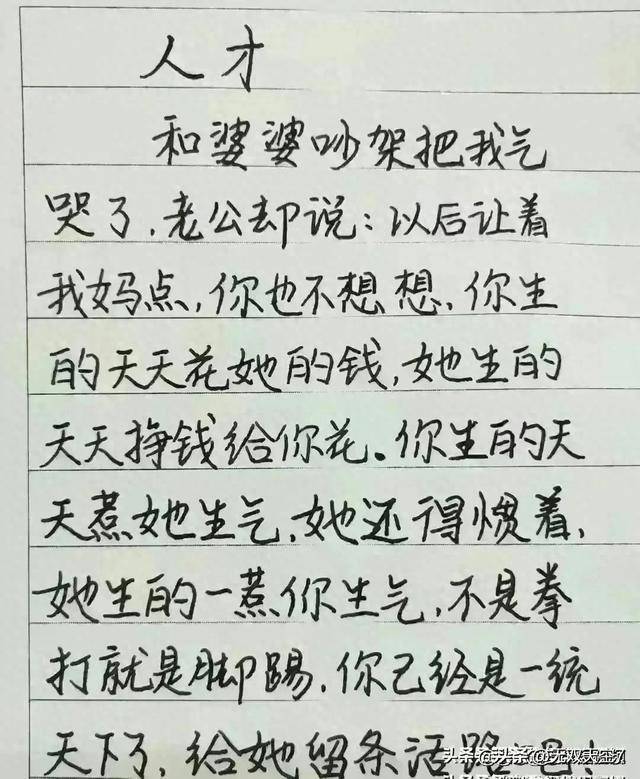 人才
和婆婆吵架把我气
哭了.老公却说:以后让着
我妈点,你也不想想.你生
的天天花她的钱,她生的
天天挣钱给你花。你生的天
天惹她生气,她还得惯着,
她生的一惹你生气,不是拳
打就是脚踢.你已经是一统
天下了,给她留条活路
头条@无双